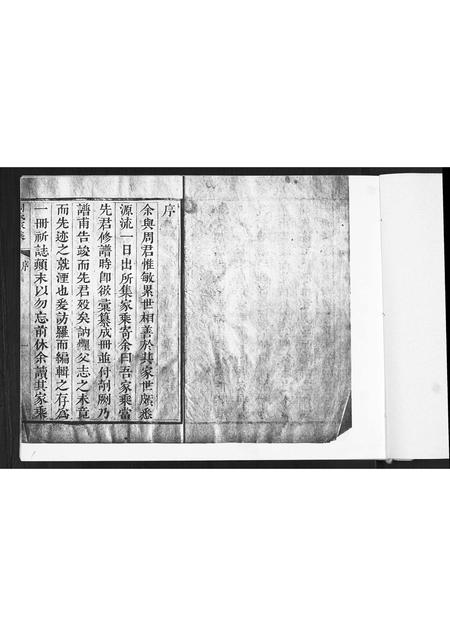 序
余與周君惟敏累世相善於其家世廢悉
源流一日出所集家乘寄余曰吾家乘當
先君修譜時即欲彙纂成冊並付剞劂乃
譜甫告竣而先君歿矣訥懼父志之未竟
而先迹之就湮也爰訪羅而編輯之存為
一冊祈誌顛末以勿忘前休余讀其家乘
序